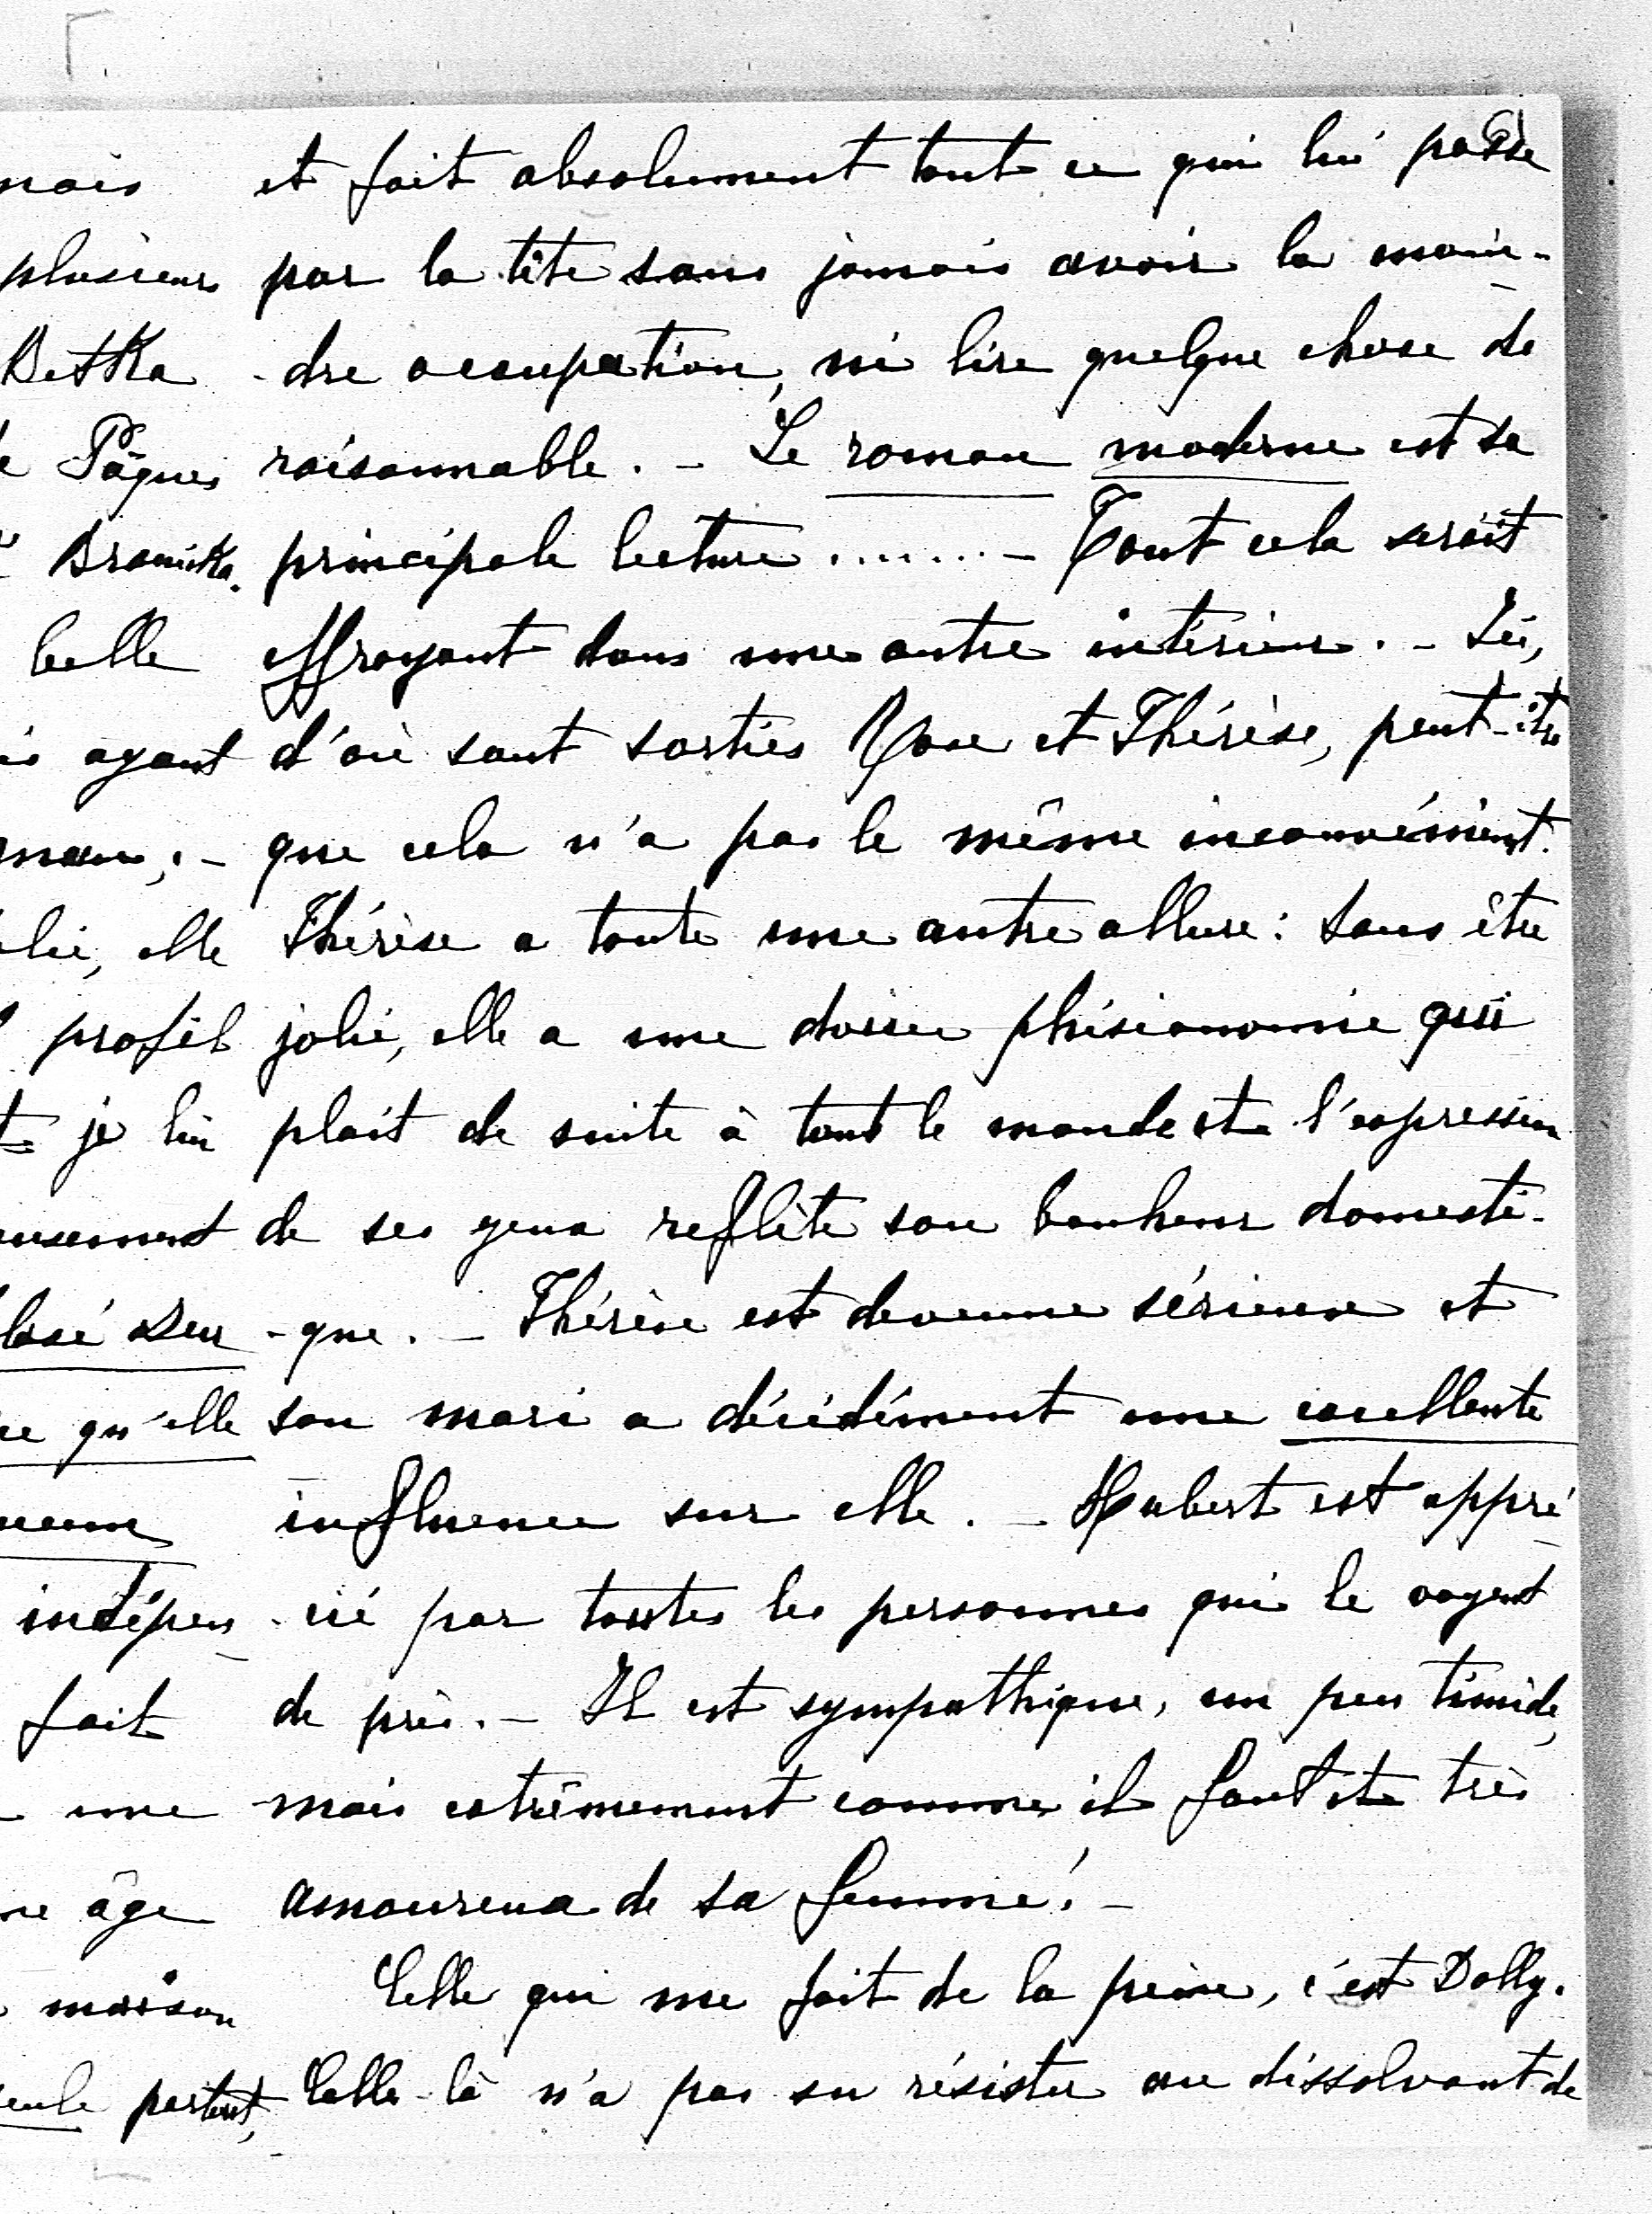 et fait absolument tout ce qui lui passe
par la tête sans jamais avoir la moin-
-dre occupation, ni lire quelque chose de
raisonnable. - Le roman moderne est sa
principale lecture ....... - Tout cela serait
effrayant dans une autre intérieur. - Ici,
d'où sont sorties Rose et Thérèse, peut-être
que cela n'a pas le même inconvénient.
Thérèse a toute une autre allure: sans être
jolie, elle a une douce phisionomie qui
plait de suite à tout le monde et l'expression
de ses yeux reflète son bonheur domesti-
-que. - Thérèse est devenue sérieuse et
son mari a décidément une excellente
influence sur elle. - Hubert est appré-
-cié par toutes les personnes qui le voyent
de près. - Il est sympathique, un peu timide,
mais extrêmement comme il faut et très
amoureux de sa femme! -
Celle qui me fait de la peine, c'est Dolly.
Celle-là n'a pas su résister au dissolvant de
mais
plusieurs
Betka
Pâques
Branicka.
belle
ayant
elle
profil
je lui
qu'elle
indépen-
fait
une
âge
maison
partout,